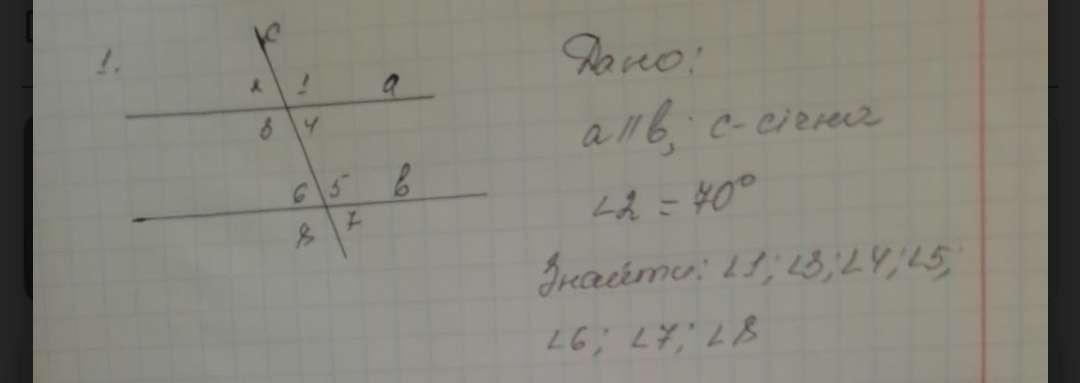 1.
c
2 1 a
3 4
6 5 b
8 7
Дано:
a∥b; c-січна
∠2 = 70°
Знайти: ∠1; ∠3; ∠4; ∠5;
∠6; ∠7; ∠8